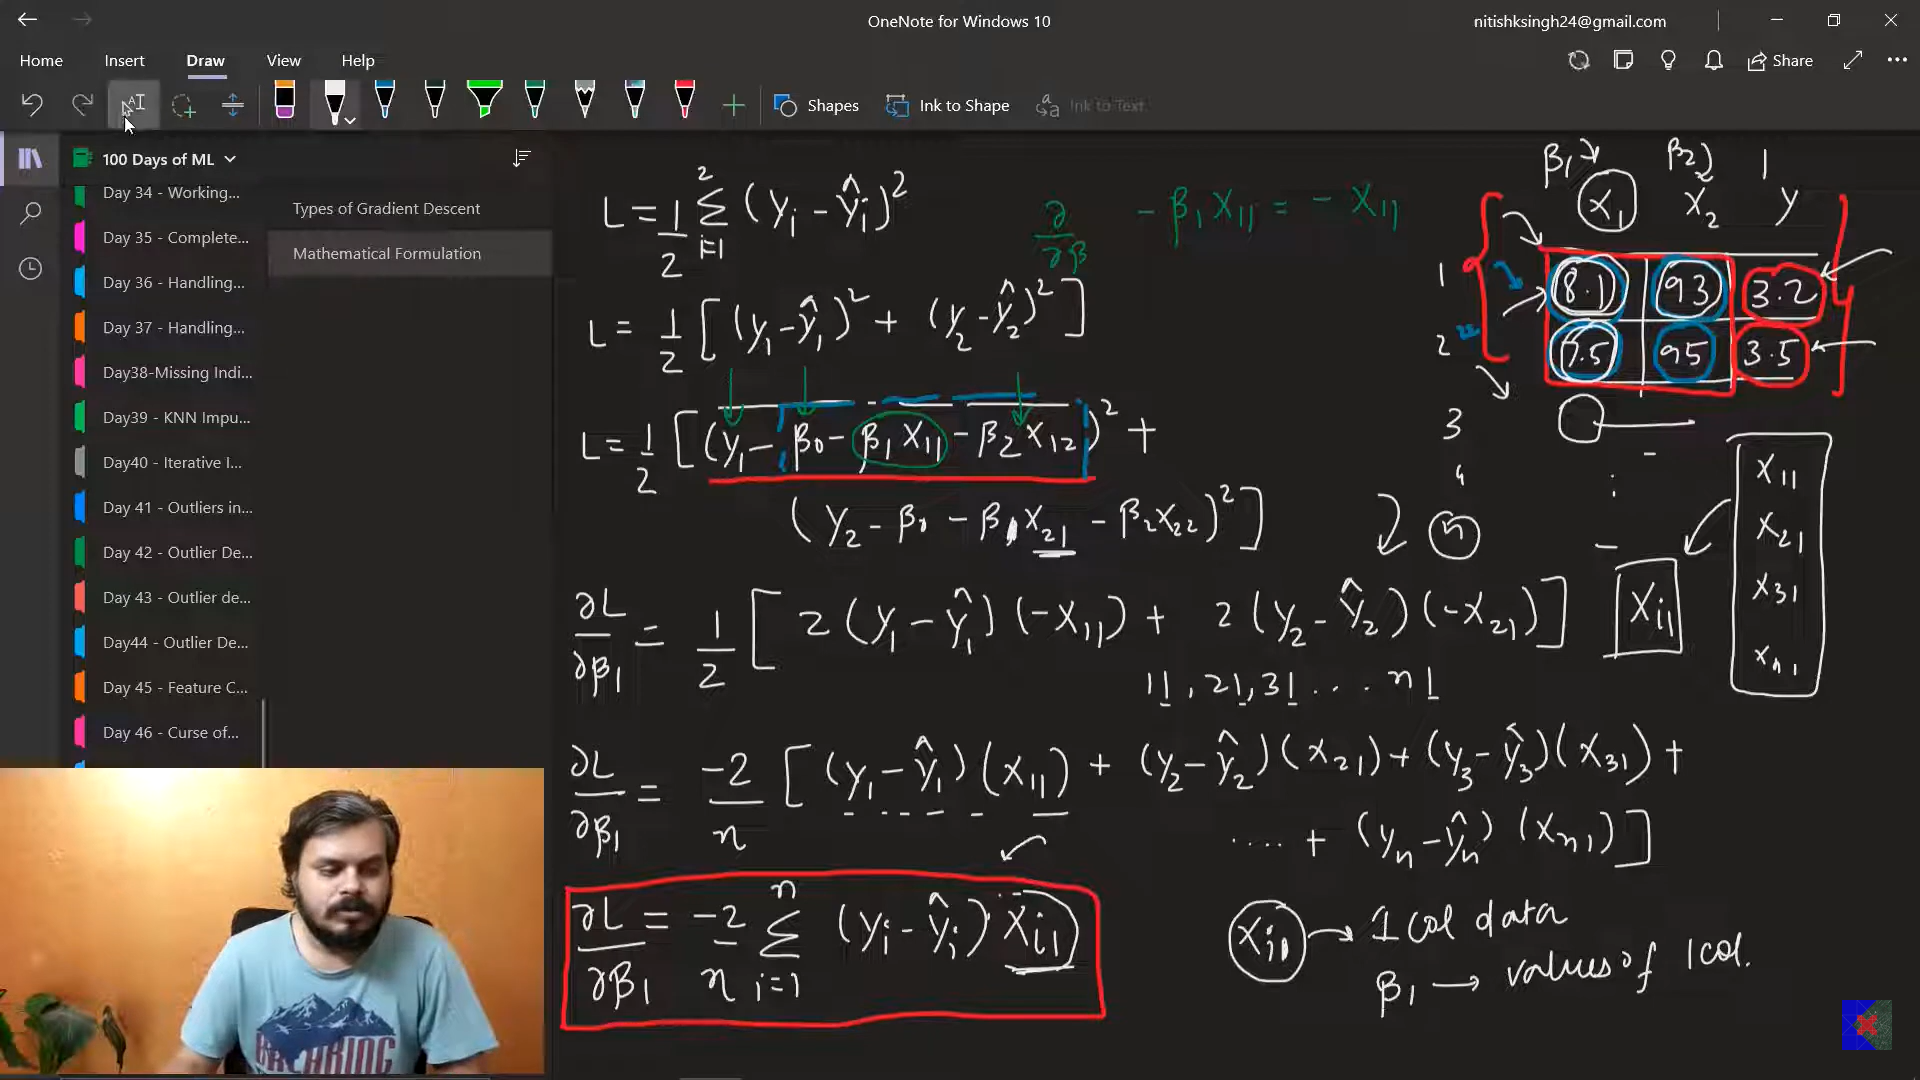 OneNote for Windows 10
nitishksingh24@gmail.com
Home Insert Draw View Help
Share
Shapes Ink to Shape Ink to Text
100 Days of ML
Day 34 - Working...
Day 35 - Complete...
Day 36 - Handling...
Day 37 - Handling...
Day38-Missing Indi...
Day39 - KNN Impu...
Day40 - Iterative I...
Day 41 - Outliers in...
Day 42 - Outlier De...
Day 43 - Outlier de...
Day44 - Outlier De...
Day 45 - Feature C...
Day 46 - Curse of...
Types of Gradient Descent
Mathematical Formulation
L = 1/2 Σ_{i=1}^{2} (yi - ŷi)²
∂/∂β - β1 X11 = - X11
L = 1/2 [(y1 - ŷ1)² + (y2 - ŷ2)²]
L = 1/2 [(y1 - β0 - β1 X11 - β2 X12)² +
(y2 - β0 - β1 X21 - β2 X22)²]
∂L/∂β1 = 1/2 [2(y1 - ŷ1)(-X11) + 2(y2 - ŷ2)(-X21)]
11, 21, 31 ... n1
∂L/∂β1 = -2/n [(y1 - ŷ1)(X11) + (y2 - ŷ2)(X21) + (y3 - ŷ3)(X31) +
.... + (yn - ŷn)(Xn1)]
∂L/∂β1 = -2/n Σ_{i=1}^{n} (yi - ŷi) Xi1
Xi1 → 1 col data
β1 → values of 1 col.
β1 β2
X1 X2 Y
1 8.1 93 3.2
2 7.5 95 3.5
3
4
n
Xi1
X11
X21
X31
Xn1
BREAKING